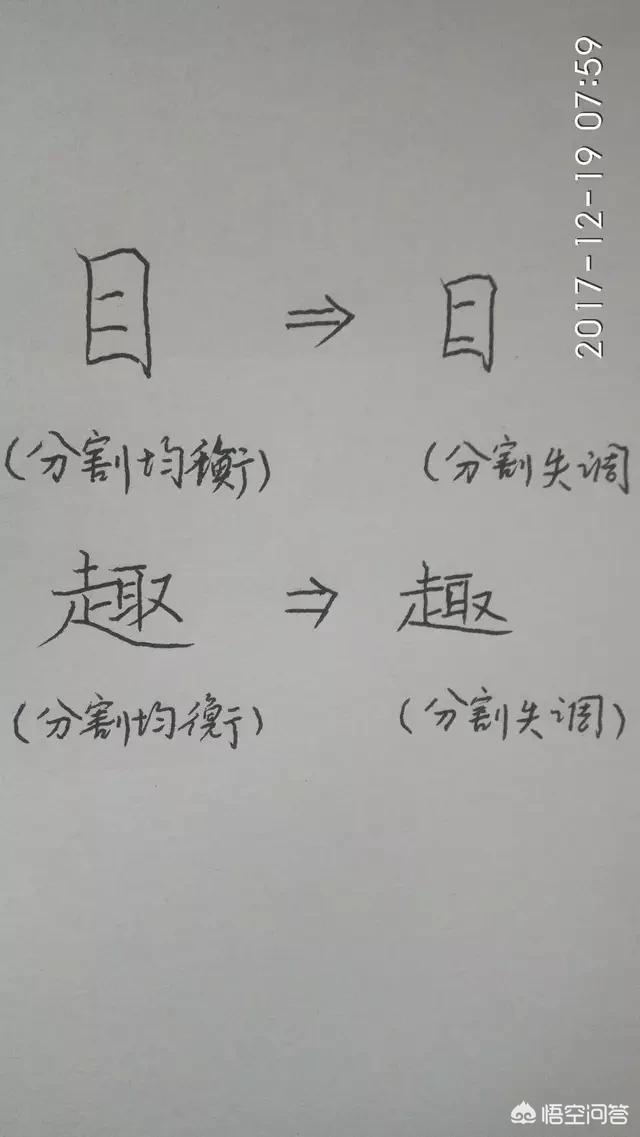 2017-12-19 07:59
目 ⇒ 目
(分割均衡) (分割失调
趣 ⇒ 趣
(分割均衡) (分割失调)
悟空问答